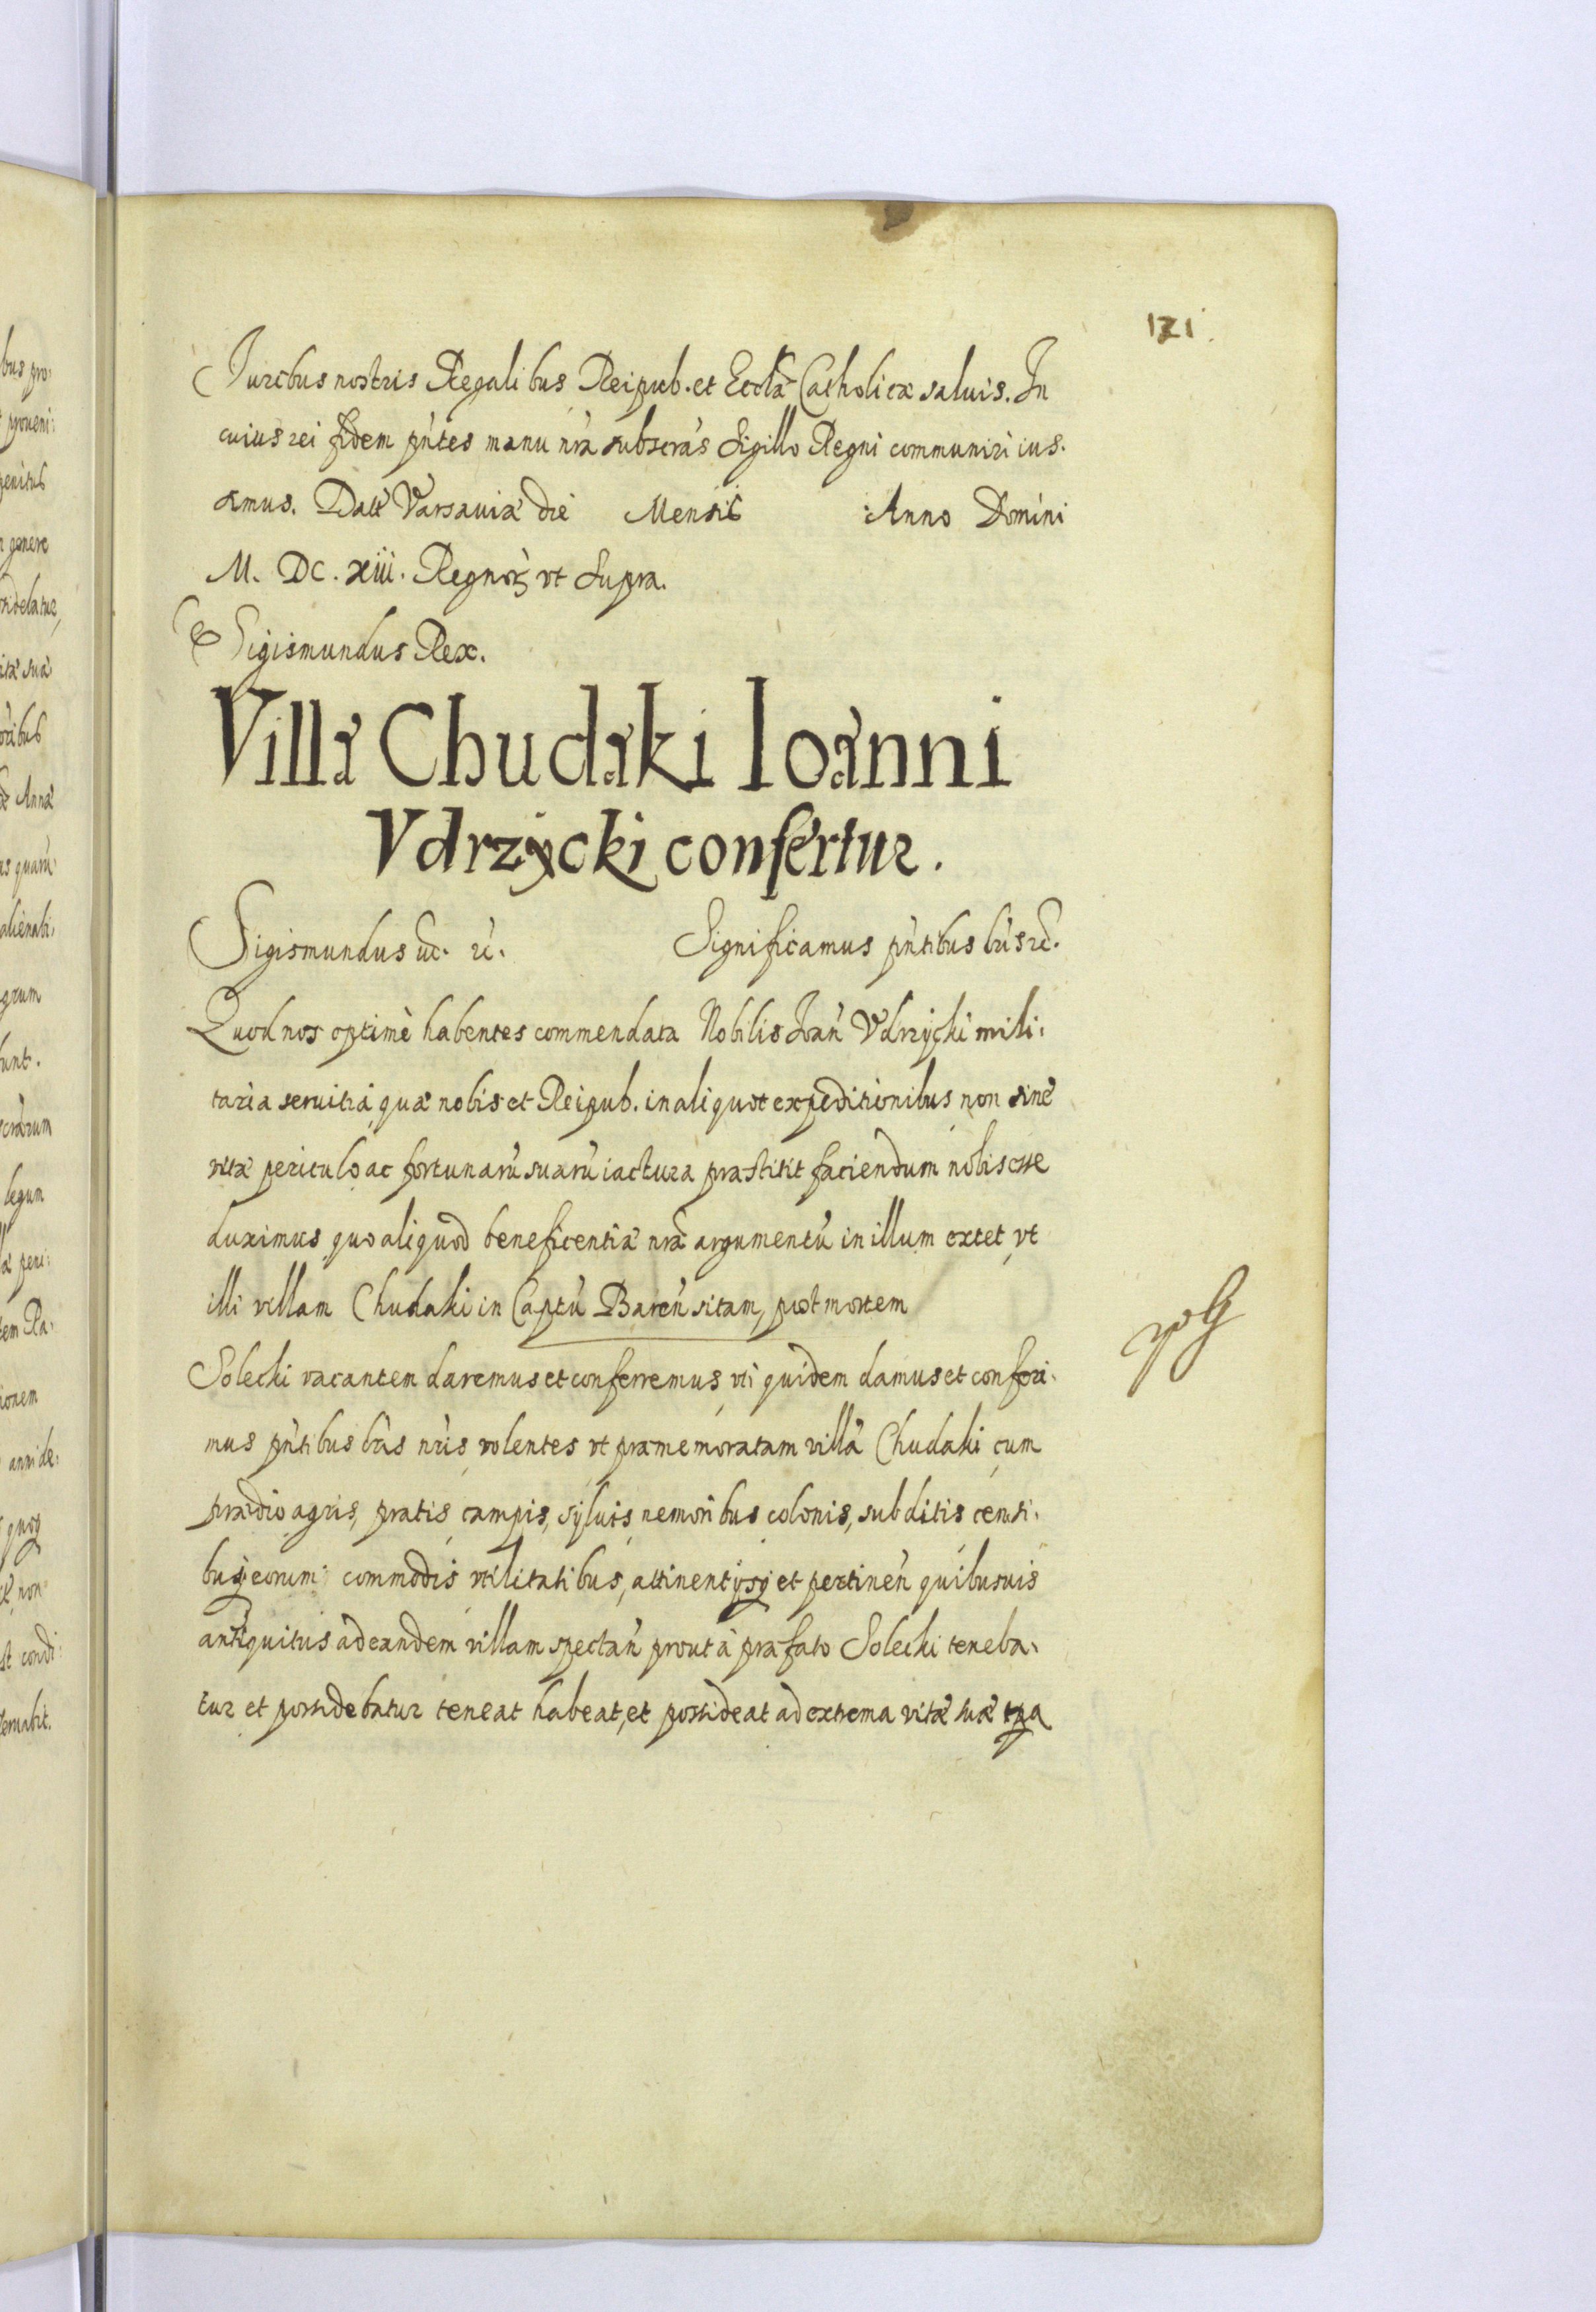 121.
Iuribus nostris Regalibus Reipub. et Eccla Catholicæ saluis. In
cuius rei fidem pn̄tes manu nr̄a subscrās Sigillo Regni communiri ius.
simus. Datt Varsauiæ die Mensis Anno Domini
M. DC. xiii. Regnorꝫ vt Supra.
Sigismundus Rex.
Villa Chudaki Ioanni
Vdrzÿcki confertur.
Sigismundus etc. rc. Significamus pn̄tibus lr̄is rc.
Quod nos optimè habentes commendata Nobilis Ioan̄ Vdrzÿcki mili:
taria seruitia, quæ nobis et Reipub. in aliquot expeditionibus non sine
vitæ periculo ac fortunarū suarū iactura præstitit faciendum nobis esse
duximus quo aliquod beneficentiæ nr̄æ argumentū in illum extet, vt
illi villam Chudaki in Captū Baren̄ sitam, post mortem
Solecki vacantem daremus et conferremus, vti quidem damus et conferi.
mus pn̄tibus lr̄is nr̄is volentes vt præmemoratam villā Chudaki cum
prædio agris, pratis, campis, syluis, nemoribus colonis, subditis censi.
busq eorum commodis vtilitatibus, attinentijsq et pertinen̄ quibusuis
antiquitus ad eandem villam spectan̄ prout à præfato Solecki teneba,
tur et possidebatur teneat habeat, et possideat ad extrema vitæ suæ tpa